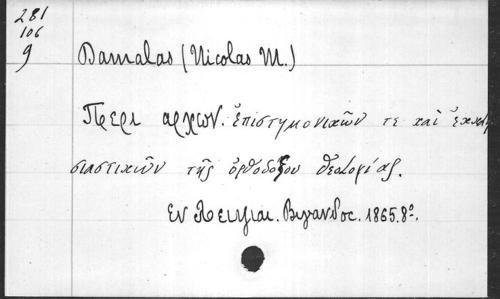 281
106
9
Damalas (Nicolas M.)
Περι αρχων. ἐπιστυμονικῶν τε καὶ ἐκκλη
σιαστικῶν τῆς ὀρθοδοξου θεολογίας.
Εν Λειψιαι. Βιγανδος. 1865. 8º.